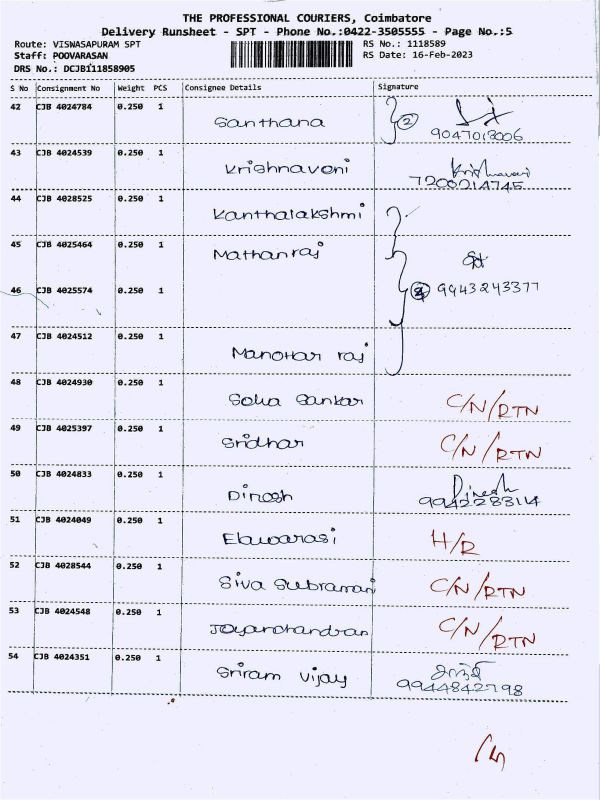 THE PROFESSIONAL COURIERS, Coimbatore
Delivery Runsheet - SPT - Phone No.:0422-3505555 - Page No.:5
Route: VISWASAPURAM SPT RS No.: 1118589
Staff: POOVARASAN RS Date: 16-Feb-2023
DRS No.: DCJB111858905
S No Consignment No Weight PCS Consignee Details Signature
42 CJB 4024784 0.250 1 Santhana 2 9047013006
43 CJB 4024539 0.250 1 Krishnaveni Krishnaveni 7200214745
44 CJB 4028525 0.250 1 Kanthalakshmi
45 CJB 4025464 0.250 1 Mathanraj
46 CJB 4025574 0.250 1 4 9943243377
47 CJB 4024512 0.250 1 Manohar raj
48 CJB 4024930 0.250 1 Sankar C/N/RTN
49 CJB 4025397 0.250 1 Sridhar C/N/RTN
50 CJB 4024833 0.250 1 Dinesh Dinesh 9942283114
51 CJB 4024049 0.250 1 Elavarasi H/R
52 CJB 4028544 0.250 1 Siva Subramani C/N/RTN
53 CJB 4024548 0.250 1 Jeyachandran C/N/RTN
54 CJB 4024351 0.250 1 Sriram Vijay 9944842798